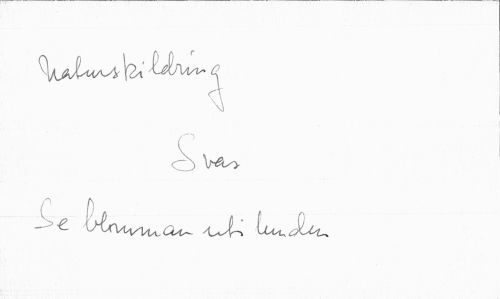 Naturskildring
Svar
Se blomman uti lunden